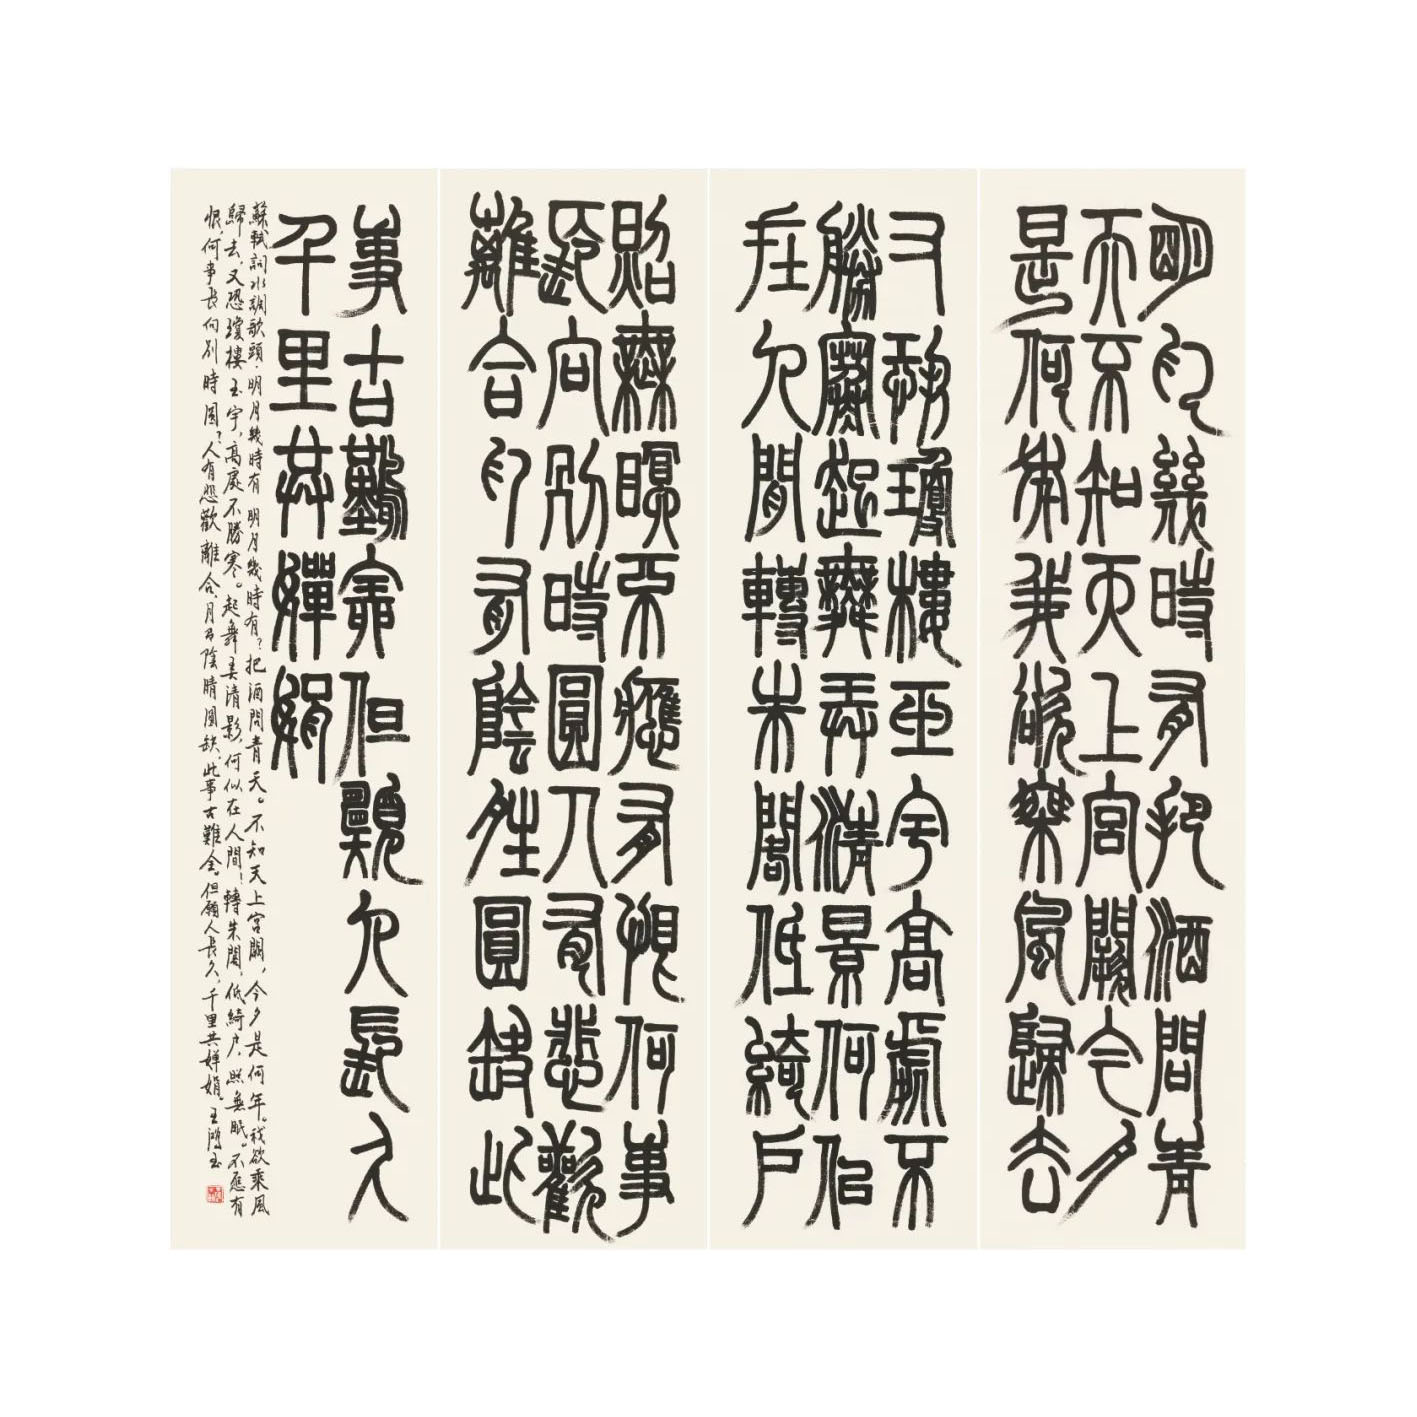 明月幾時有把酒問青
天不知天上宮闕今夕
是何年我欲乘風歸去
又恐瓊樓玉宇高處不
勝寒起舞弄清景何似
在人間轉朱閣低綺戶
照無眠不應有恨何事
長向別時圓人有悲歡
離合月有陰晴圓缺此
事古難全但願人長久
千里共嬋娟
蘇軾詞水調歌頭·明月幾時有 明月幾時有？把酒問青天。不知天上宮闕，今夕是何年。我欲乘風
歸去，又恐瓊樓玉宇，高處不勝寒。起舞弄清影，何似在人間！轉朱閣，低綺戶，照無眠。不應有
恨，何事長向別時圓？人有悲歡離合，月有陰晴圓缺，此事古難全。但願人長久，千里共嬋娟。王鴻玉